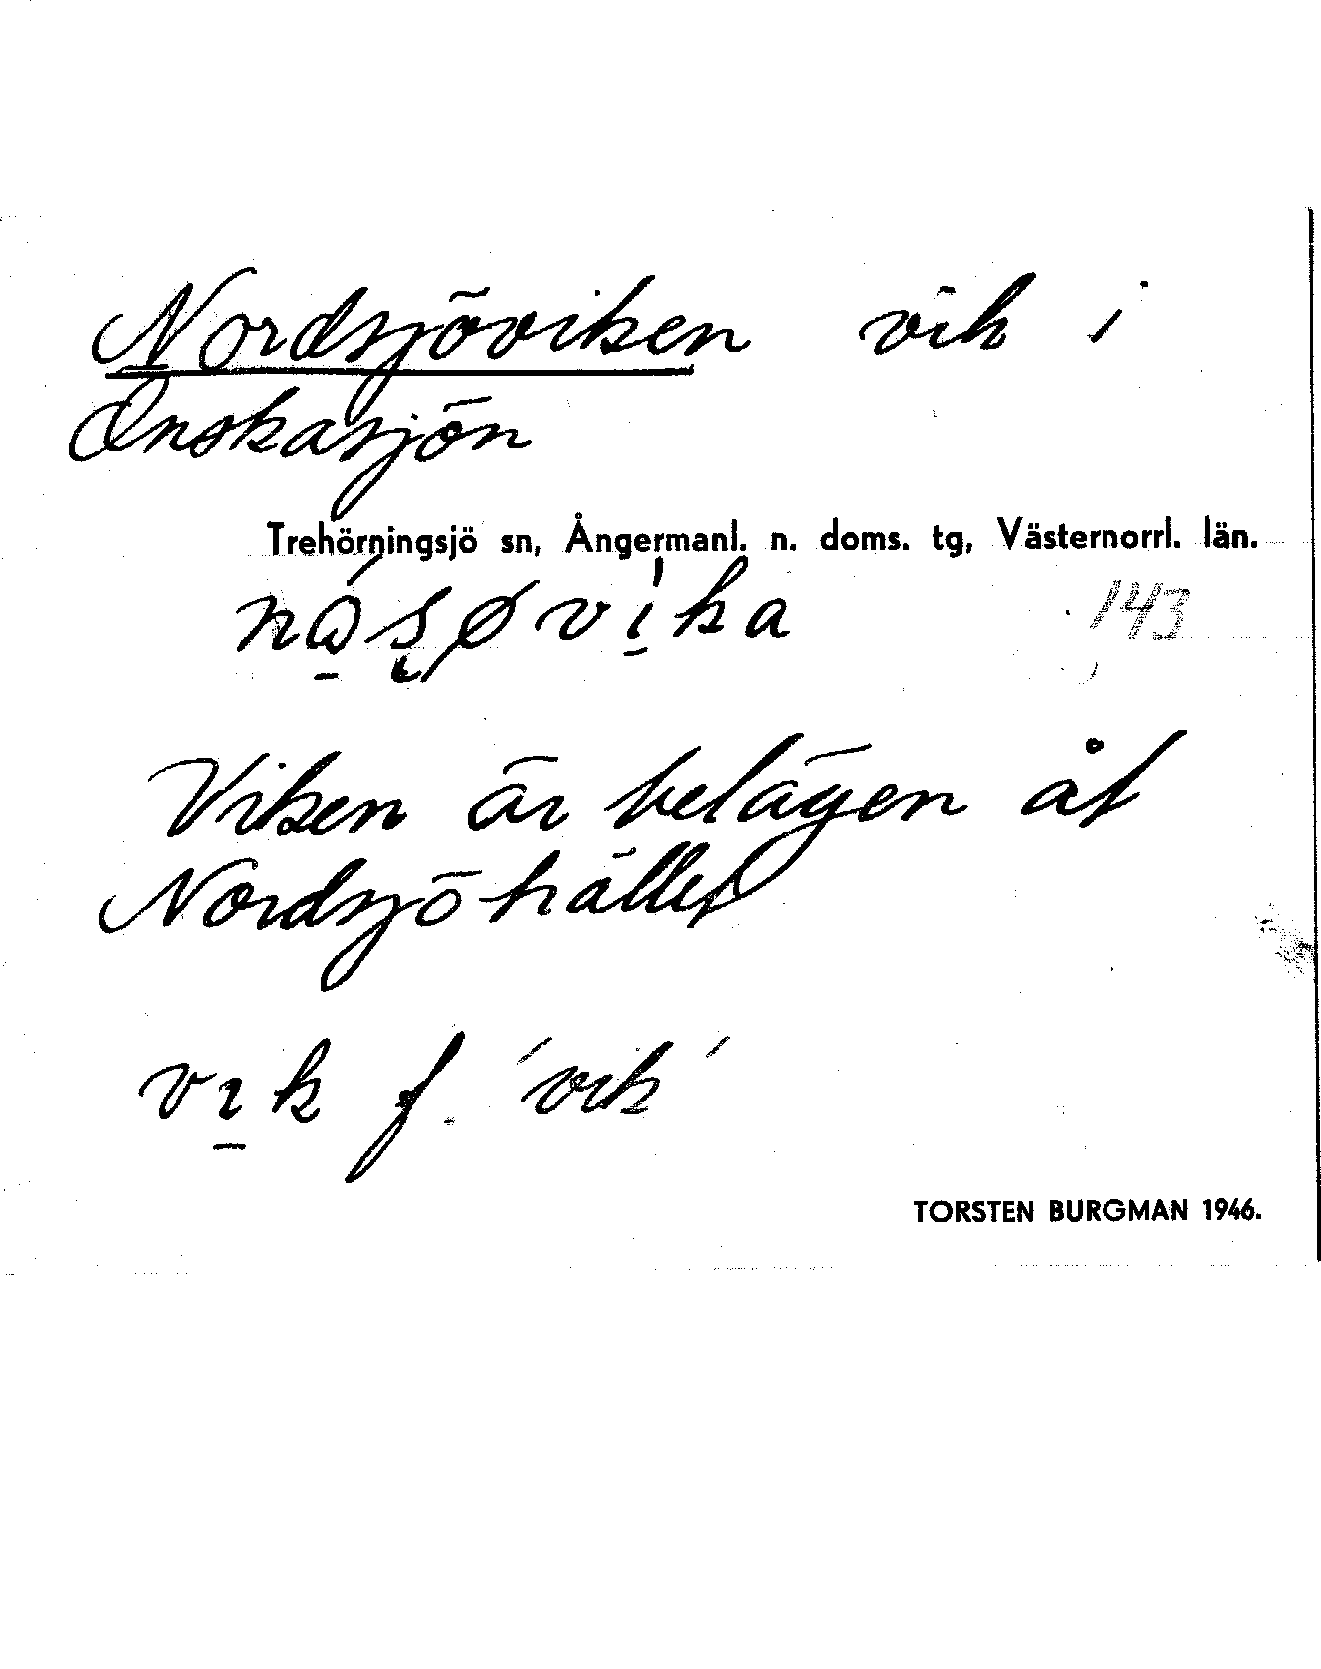 Nordsjöviken vik i
Önskasjön
Trehörningsjö sn, Ångermanl. n. doms. tg, Västernorrl. län.
143
Viken är belägen åt
Nordsjö-hållet
vik f. 'vik'
TORSTEN BURGMAN 1946.